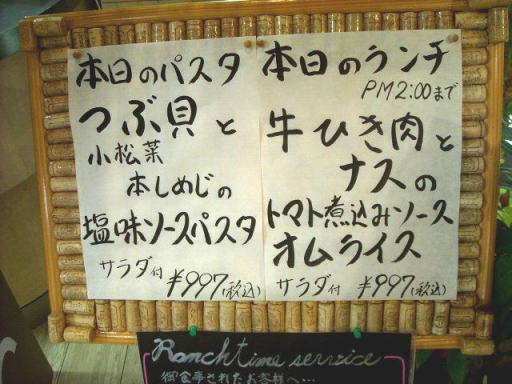 本日のランチ
PM2:00まで
牛ひき肉と
ナスの
トマト煮込みソース
オムライス
サラダ付 ¥997(税込)
本日のパスタ
つぶ貝と
小松菜
本しめじの
塩味ソースパスタ
サラダ付 ¥997(税込)
Ranch time service
御食事されたお客様へ…